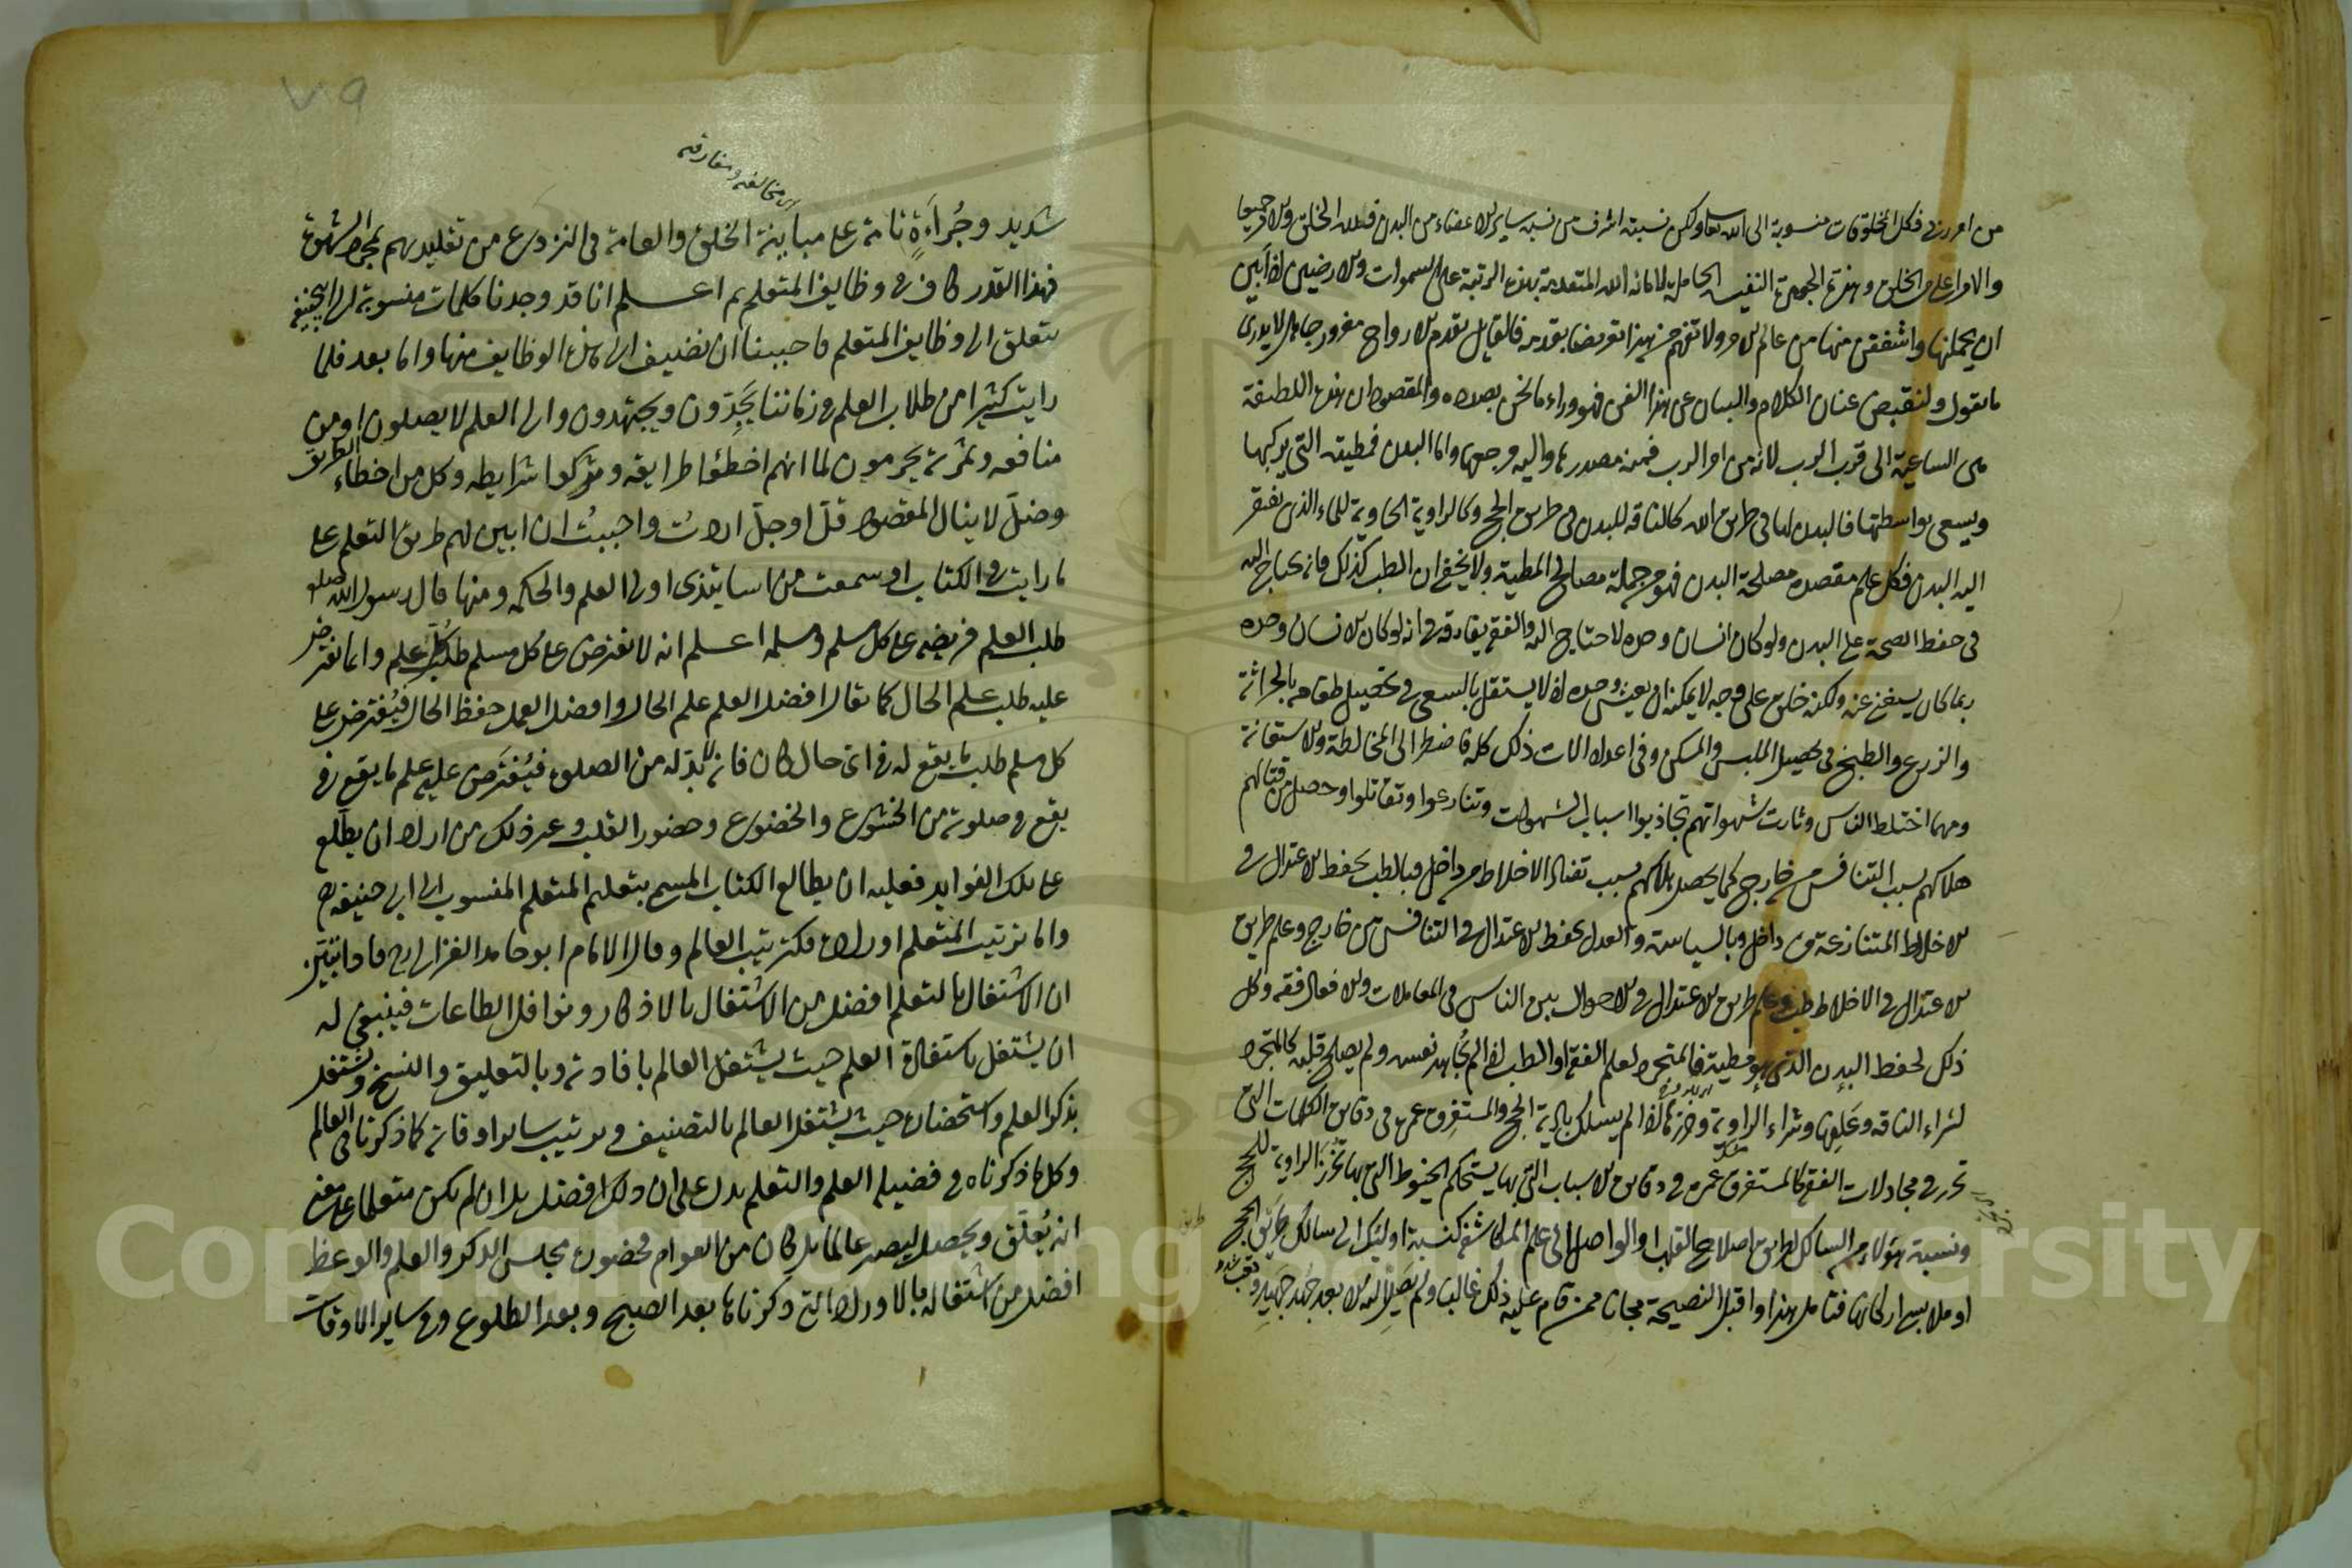 من امر ربي فكل المخلوقات منسوبة الى الله تعالى ولكن نسبته اشرف من نسبة ساير الاعضاء من البدن فلله الخلق والامر جميعا
والامر اعلى من الخلق وهذه الجوهرة النفيسة الحاملة لامانة الله المتقدمة بهذه الرتبة على السموات والارضين اذ ابين
ان يحملنها واشفقن منها من عالم الامر ولا تفهم من هذا تعريضا بقدمه فالقايل بقدم الارواح مغرور جاهل لا يدري
ما يقول ولنقبض عنان الكلام والبيان عن هذا الفن فهو وراء ما نحن بصدده والمقصود ان هذه اللطيفة
هي الساعية الى قرب الرب لانه من امر الرب فمنه مصدرها واليه مرجعها واما البدن فمطيته التي يركبها
ويسعى بواسطتها فالبدن لها في طريق الله كالناقة للبدن في طريق الحج وكالراوية الحاوية للماء الذي يفتقر
اليه البدن فكل علم مقصده مصلحة البدن فهو من جملة مصالح المطية ولا يخفى ان الطب كذلك فانه يحتاج اليه
في حفظ الصحة على البدن ولو كان انسان وحده لاحتاج اليه والفقه يفارقه في انه لو كان الانسان وحده
ربما كان يستغني عنه ولكنه خلق على وجه لا يمكنه ان يعيش وحده اذ لا يستقل بالسعي في تحصيل طعامه بالحراثة
والزرع والطبخ في تحصيل الملبس والمسكن وفي اعداد الات ذلك كله فاضطر الى المخالطة والاستعانة
ومهما اختلط الناس وثارت شهواتهم تجاذبوا اسباب الشهوات وتنازعوا وتقاتلوا وحصل من قتالهم
هلاكهم بسبب التنافس من خارج كما يحصل هلاكهم بسبب تضاد الاخلاط من داخل فبالطب يحفظ الاعتدال في
الاخلاط المتنازعة من داخل وبالسياسة والعدل يحفظ الاعتدال في التنافس من خارج وعلم طريق
الاعتدال في الاخلاط طب وعلم طريق الاعتدال في الاحوال بين الناس في المعاملات والافعال فقه وكل
ذلك لحفظ البدن الذي هو مطية فالمتجرد لعلم الفقه او الطب اذا لم يجاهد نفسه ولم يصلح قلبه كالمتجرد
لشراء الناقة وعلفها وشراء الراوية وخرزها اذا لم يسلك بادية الحج والمستغرق عمره في دقايق الكلمات التي
تحرر في مجادلات الفقه كالمستغرق عمره في دقايق الاسباب التي بها يستحكم الخيوط التي بها تخرز الراوية للحج
ونسبة هؤلاء من السالك لطريق اصلاح القلب او الواصل الى علم المكاشفة كنسبة اوليك الى سالك طريق الحج
او ملابس اركانها فتامل هذا واقبل النصيحة مجانا ممن قام عليه ذلك غالبا ولم يصل اليه الا بعد جهد جهيد
اي مخالفة ومفارقة
٧٩
شديد وجرأة تامة على مباينة الخلق والعامة في النزوع من تقليدهم بمجرد الشهوة
فهذا القدر كاف في وظايف المتعلم ثم اعلم انا قد وجدنا كلمات منسوبة لابي حنيفة
يتعلق الى وظايف المتعلم فاحببنا ان نضيف الى هذه الوظايف منها واما بعد فلما
رايت كثيرا من طلاب العلم في زماننا يجدون ويجتهدون والى العلم لا يصلون او من
منافعه وثمرته يحرمون لما انهم اخطؤا طرايقه وتركوا شرايطه وكل من اخطاء الطريق
وضل لا ينال المقصود قل او جل اردت واحببت ان ابين لهم طريق التعلم على
ما رايت في الكتاب او سمعت من اساتيذي اولى العلم والحكمة ومنها قال رسول الله صلعم
طلب العلم فريضة على كل مسلم ومسلمة اعلم انه لا يفترض على كل مسلم طلب كل علم وانما يفترض
عليه طلب علم الحال كما يقال افضل العلم علم الحال وافضل العمل حفظ الحال فيفترض على
كل مسلم طلب ما يقع له في اي حال كان فانه لا بد له من الصلوة فيفترض عليه علم ما يقع في
يقع في صلوته من الخشوع والخضوع وحضور القلب وغير ذلك من اراد ان يطلع
على تلك الفوايد فعليه ان يطالع الكتاب المسمى بتعليم المتعلم المنسوب الى ابي حنيفة رح
واما ترتيب المتعلم اوراده فكترتيب العالم وقال الامام ابو حامد الغزالي رح
ان الاشتغال بالتعلم افضل من الاشتغال بالاذكار ونوافل الطاعات فينبغي له
ان يشتغل باستفادة العلم حيث يشتغل العالم بافادته وبالتعليق والنسخ ويشتغل
بذكر العلم واستحضاره حيث يشتغل العالم بالتصنيف وترتيب ساير اوقاته كما ذكرنا في العالم
وكل ما ذكرناه في فضيلة العلم والتعلم يدل على ان ذلك افضل بل ان لم يكن متعلما على معنى
انه يعلق ويحصل ليصير عالما بل كان من العوام فحضوره مجلس الذكر والعلم والوعظ
افضل من اشتغاله بالاوراد التي ذكرناها بعد الصبح وبعد الطلوع وفي ساير الاوقات
Copyright © King Saud University